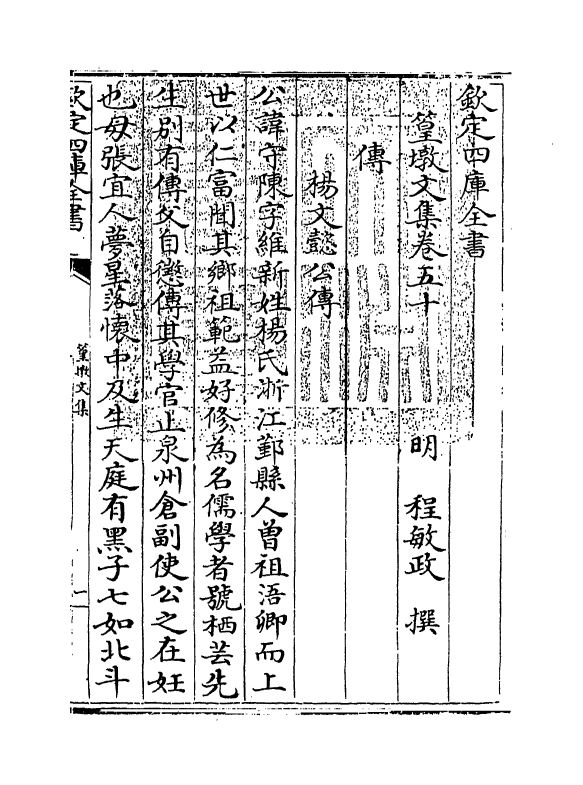 欽定四庫全書
篁墩文集卷五十
明 程敏政 撰
傳
楊文懿公傳
公諱守陳字維新姓楊氏浙江鄞縣人曽祖浯卿而上
世以仁富聞其鄉祖範益好修為名儒學者號栖芸先
生别有傳父自懲傳其學官止泉州倉副使公之在妊
也母張宜人夢星落懷中及生天庭有黑子七如北斗
欽定四庫全書
篁墩文集
一